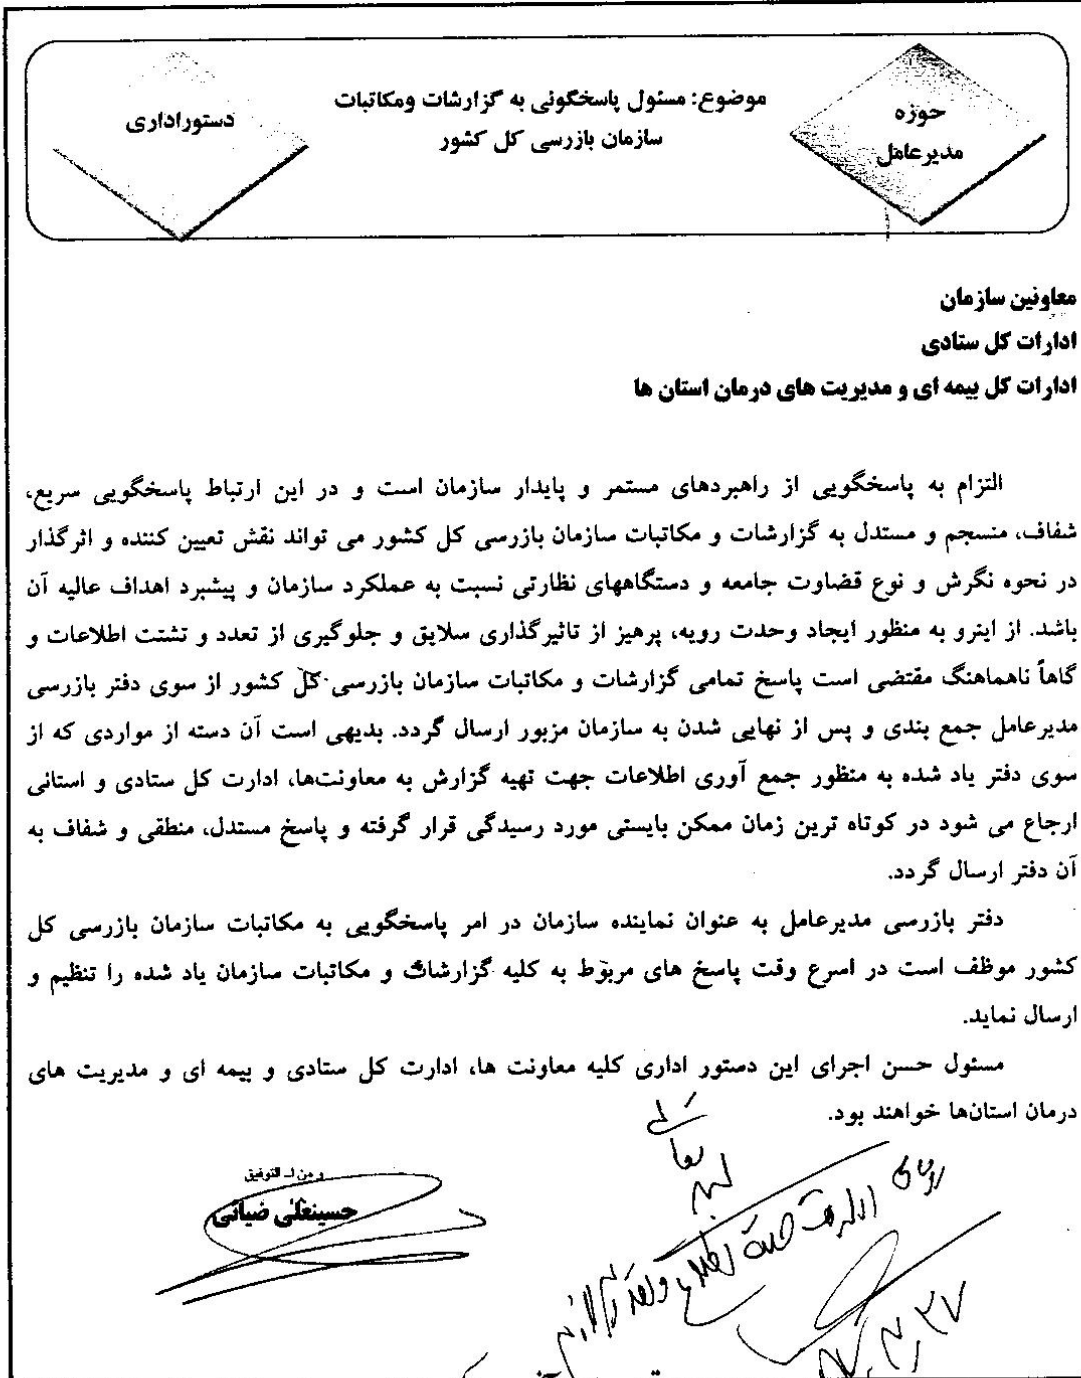 حوزه
مدیرعامل
موضوع: مسئول پاسخگوئی به گزارشات ومکاتبات
سازمان بازرسی کل کشور
دستوراداری
معاونین سازمان
ادارات کل ستادی
ادارات کل بیمه ای و مدیریت های درمان استان ها
التزام به پاسخگویی از راهبردهای مستمر و پایدار سازمان است و در این ارتباط پاسخگویی سریع،
شفاف، منسجم و مستدل به گزارشات و مکاتبات سازمان بازرسی کل کشور می تواند نقش تعیین کننده و اثرگذار
در نحوه نگرش و نوع قضاوت جامعه و دستگاههای نظارتی نسبت به عملکرد سازمان و پیشبرد اهداف عالیه آن
باشد. از اینرو به منظور ایجاد وحدت رویه، پرهیز از تاثیرگذاری سلایق و جلوگیری از تعدد و تشتت اطلاعات و
گاهاً ناهماهنگ مقتضی است پاسخ تمامی گزارشات و مکاتبات سازمان بازرسی کل کشور از سوی دفتر بازرسی
مدیرعامل جمع بندی و پس از نهایی شدن به سازمان مزبور ارسال گردد. بدیهی است آن دسته از مواردی که از
سوی دفتر یاد شده به منظور جمع آوری اطلاعات جهت تهیه گزارش به معاونت‌ها، ادارت کل ستادی و استانی
ارجاع می شود در کوتاه ترین زمان ممکن بایستی مورد رسیدگی قرار گرفته و پاسخ مستدل، منطقی و شفاف به
آن دفتر ارسال گردد.
دفتر بازرسی مدیرعامل به عنوان نماینده سازمان در امر پاسخگویی به مکاتبات سازمان بازرسی کل
کشور موظف است در اسرع وقت پاسخ های مربوط به کلیه گزارشات و مکاتبات سازمان یاد شده را تنظیم و
ارسال نماید.
مسئول حسن اجرای این دستور اداری کلیه معاونت ها، ادارت کل ستادی و بیمه ای و مدیریت های
درمان استان‌ها خواهند بود.
و من ا... التوفیق
حسینعلی ضیائی